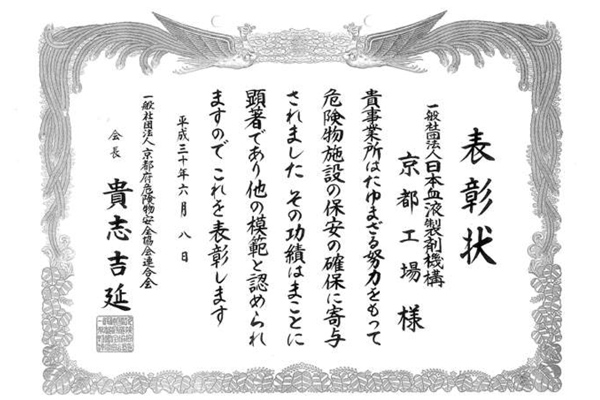 表彰状
一般社団法人日本血液製剤機構
京都工場 様
貴事業所はたゆまざる努力をもって
危険物施設の保安の確保に寄与
されました その功績はまことに
顕著であり他の模範と認められ
ますので これを表彰します
平成三十年六月八日
一般社団法人京都府危険物安全協会連合会
会長 貴志吉延